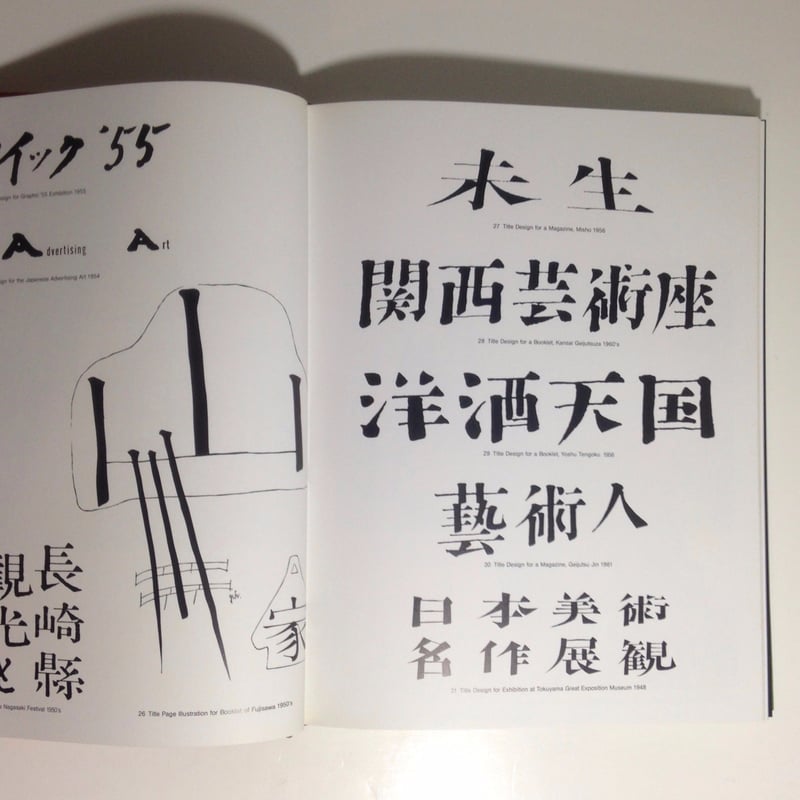 ィック '55
Design for Graphic '55 Exhibition 1955
Advertising Art
for the Japanese Advertising Art 1954
家
長崎縣
観光と
Nagasaki Festival 1950's
26 Title Page Illustration for Booklet of Fujisawa 1950's
未生
27 Title Design for a Magazine, Misho 1956
関西芸術座
28 Title Design for a Booklet, Kansai Geijutsuza 1960's
洋酒天国
29 Title Design for a Booklet, Yoshu Tengoku 1956
藝術人
30 Title Design for a Magazine, Geijutsu Jin 1981
日本美術
名作展観
31 Title Design for Exhibition at Tokuyama Great Exposition Museum 1948